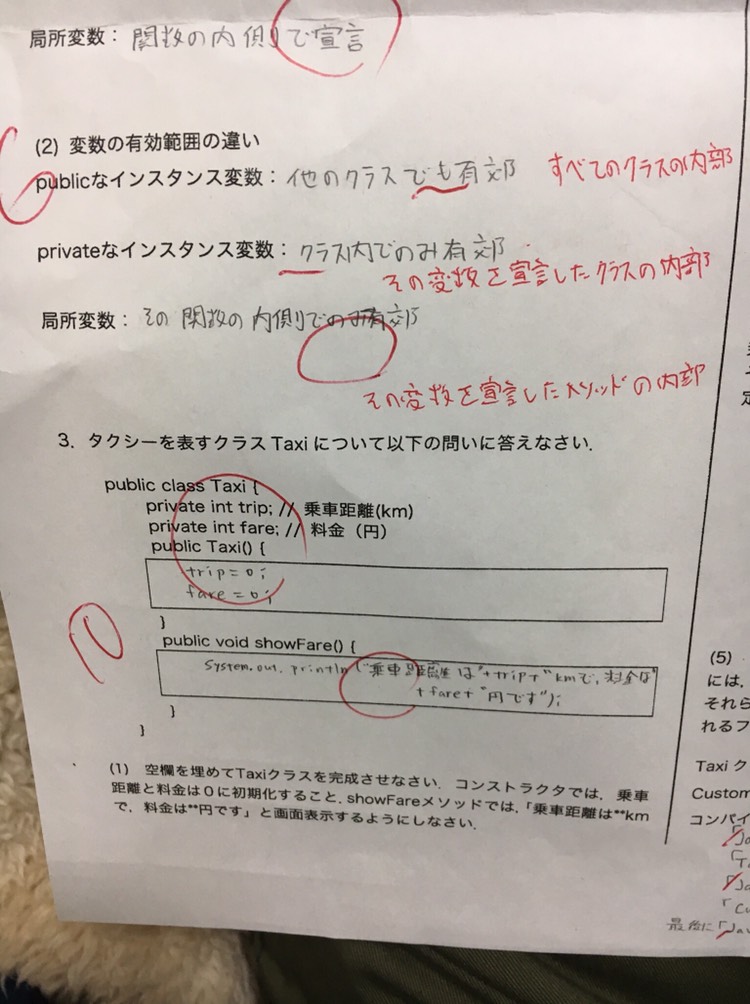 局所変数： 関数の内側で宣言
(2) 変数の有効範囲の違い
publicなインスタンス変数： 他のクラスでも有効 すべてのクラスの内部
privateなインスタンス変数： クラス内でのみ有効
その変数を宣言したクラスの内部
局所変数： その関数の内側でのみ有効
その変数を宣言したメソッドの内部
3. タクシーを表すクラス Taxi について以下の問いに答えなさい.
public class Taxi {
private int trip; // 乗車距離(km)
private int fare; // 料金（円）
public Taxi() {
trip = 0;
fare = 0;
}
10
public void showFare() {
System.out.println("乗車距離は"+trip+"kmで,料金は"
+fare+"円です");
}
}
(1) 空欄を埋めてTaxiクラスを完成させなさい. コンストラクタでは, 乗車
距離と料金は０に初期化すること. showFareメソッドでは,「乗車距離は**km
で, 料金は**円です」と画面表示するようにしなさい.
6
定
(5)
には,
それら
れるフ
Taxi ク
Custom
コンパイ
「Ja
「T
「Ja
「Cu
最後に「Jav